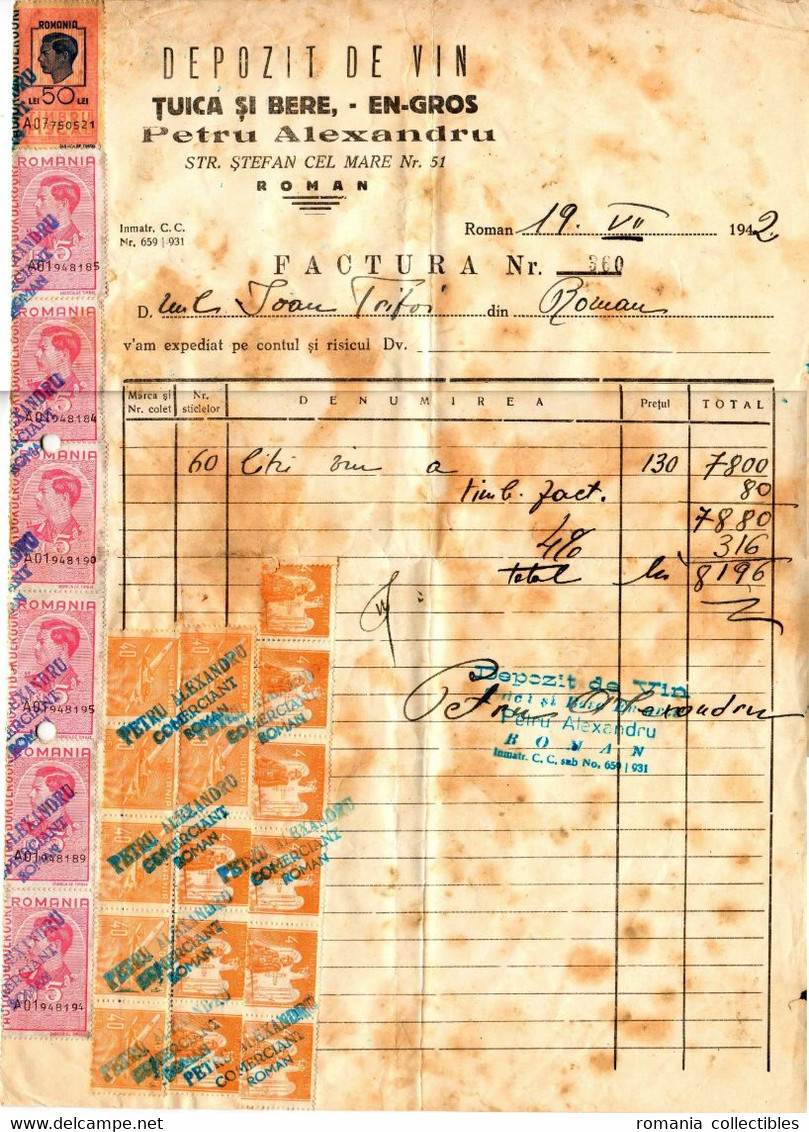 DEPOZIT DE VIN
ȚUICA ȘI BERE, - EN-GROS
Petru Alexandru
STR. ȘTEFAN CEL MARE Nr. 51
ROMAN
Inmatr. C. C.
Nr. 659 | 931
Roman 19. VII 1942
FACTURA Nr. 360
D. Ioan Trifoi din Roman
v'am expediat pe contul și risicul Dv.
Marca și Nr. colet | Nr. sticlelor | DENUMIREA | Prețul | TOTAL
60 litri vin a 130 7800
timb. fact. 80
7880
4% 316
total lei 8196
Depozit de Vin
Petru Alexandru
Petru Alexandru
ROMAN
Inmatr. C. C. sub No. 659 | 931
ROMANIA
LEI 50 LEI
A07750521
ROMANIA
5
A01948185
ROMANIA
A01948184
ROMANIA
5
A01948190
ROMANIA
5
A01948195
ROMANIA
5
A01948189
ROMANIA
5
A01948194
PETRU ALEXANDRU
COMERCIANT
ROMAN
PETRU ALEXANDRU
COMERCIANT
ROMAN
PETRU ALEXANDRU
COMERCIANT
ROMAN
PETRU ALEXANDRU
COMERCIANT
ROMAN
PETRU ALEXANDRU
COMERCIANT
ROMAN
romania collectibles